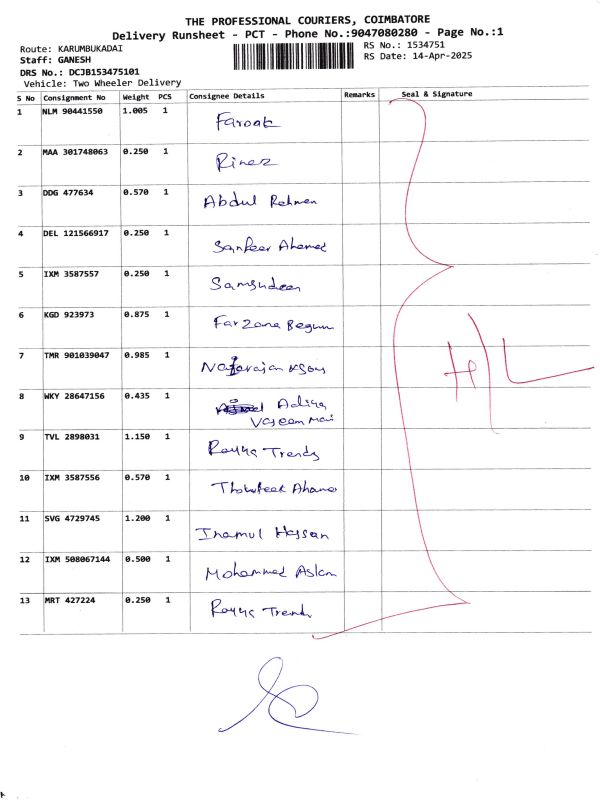 THE PROFESSIONAL COURIERS, COIMBATORE
Delivery Runsheet - PCT - Phone No.:9047080280 - Page No.:1
Route: KARUMBUKADAI
RS No.: 1534751
Staff: GANESH
RS Date: 14-Apr-2025
DRS No.: DCJB153475101
Vehicle: Two Wheeler Delivery
S No Consignment No Weight PCS Consignee Details Remarks Seal & Signature
1 NLM 90441550 1.005 1 Farook
2 MAA 301748063 0.250 1
3 DDG 477634 0.570 1 Abdul Rehman
4 DEL 121566917 0.250 1 Ahamed
5 IXM 3587557 0.250 1 Samsudeen
6 KGD 923973 0.875 1 Farzana Begum
7 TMR 901039047 0.985 1
8 WKY 28647156 0.435 1
9 TVL 2898031 1.150 1 Trends
10 IXM 3587556 0.570 1
11 SVG 4729745 1.200 1 Inamul Hassan
12 IXM 508067144 0.500 1 Mohammed Aslam
13 MRT 427224 0.250 1 Trends